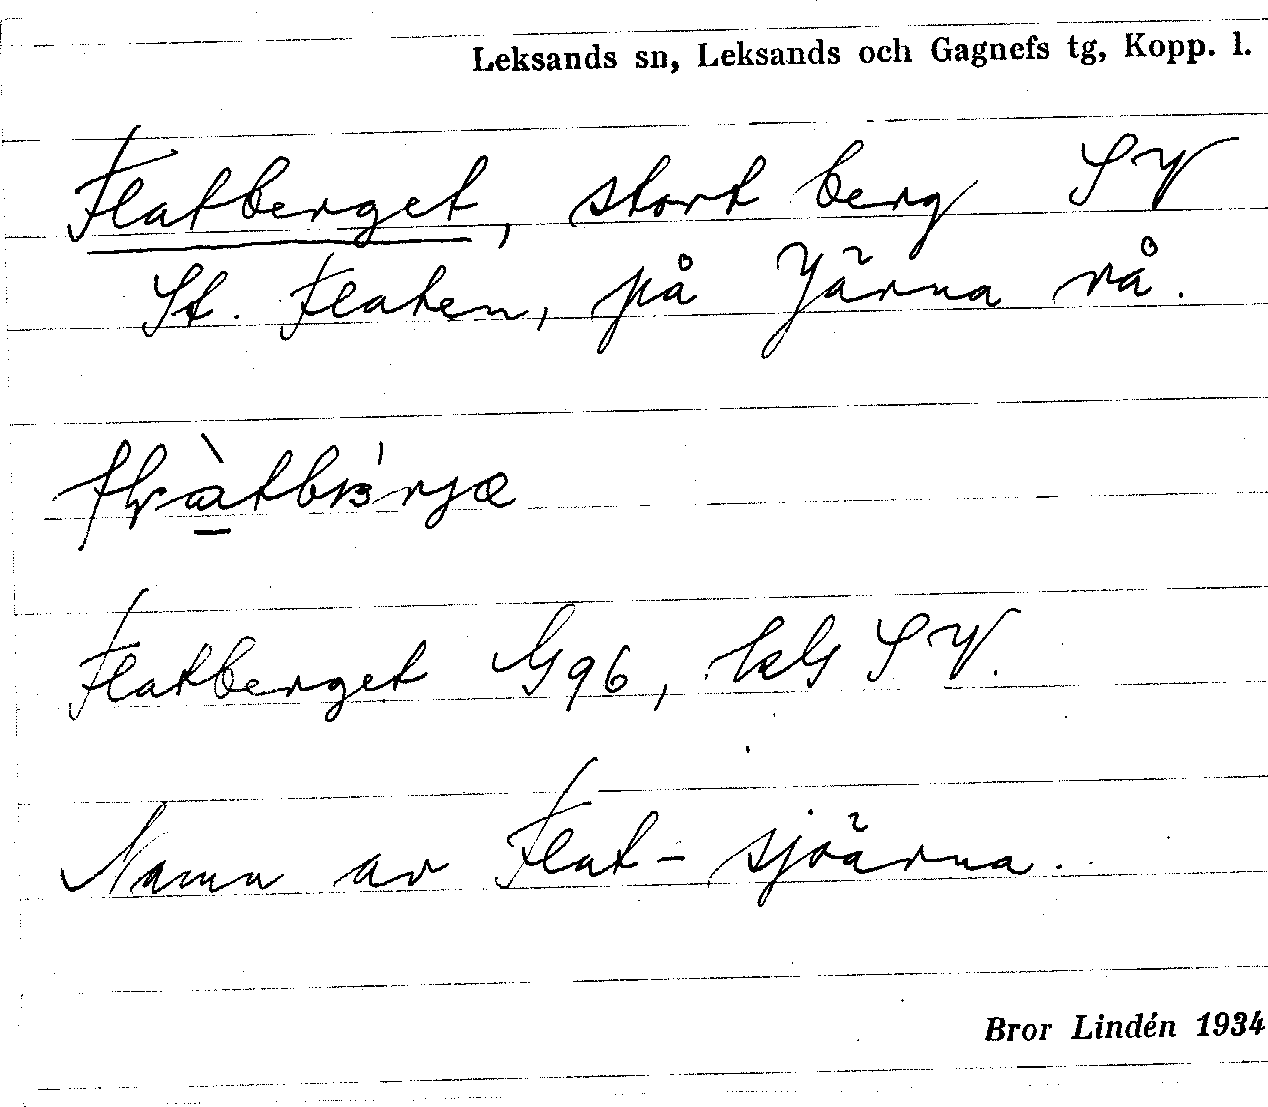 Leksands sn, Leksands och Gagnefs tg, Kopp. l.
Flatberget, stort berg SV
St. Flaten, på Järna rå.
Flatberget G96, SV.
Namn av Flat-sjöarna.
Bror Lindén 1934